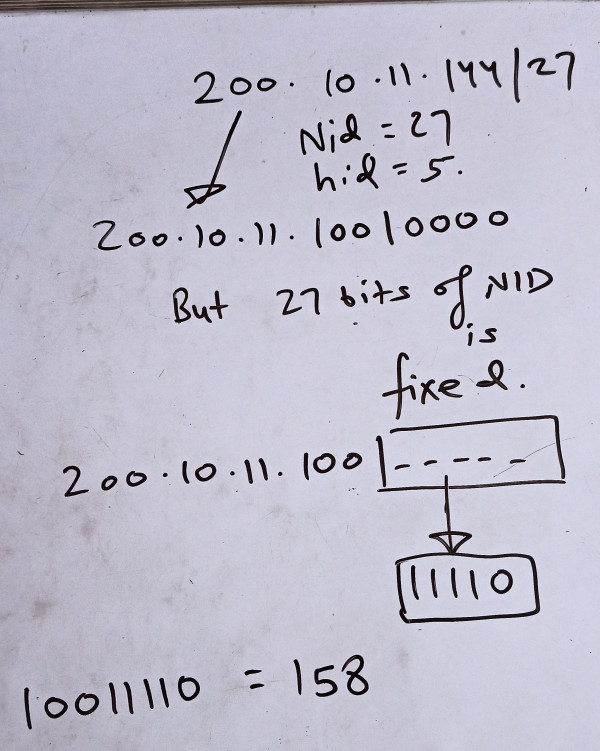 200. 10 .11. 144/27
Nid = 27
hid = 5.
200.10.11.10010000
But 27 bits of NID
is
fixed.
200.10.11.100 _ _ _ _ _
11110
10011110 = 158